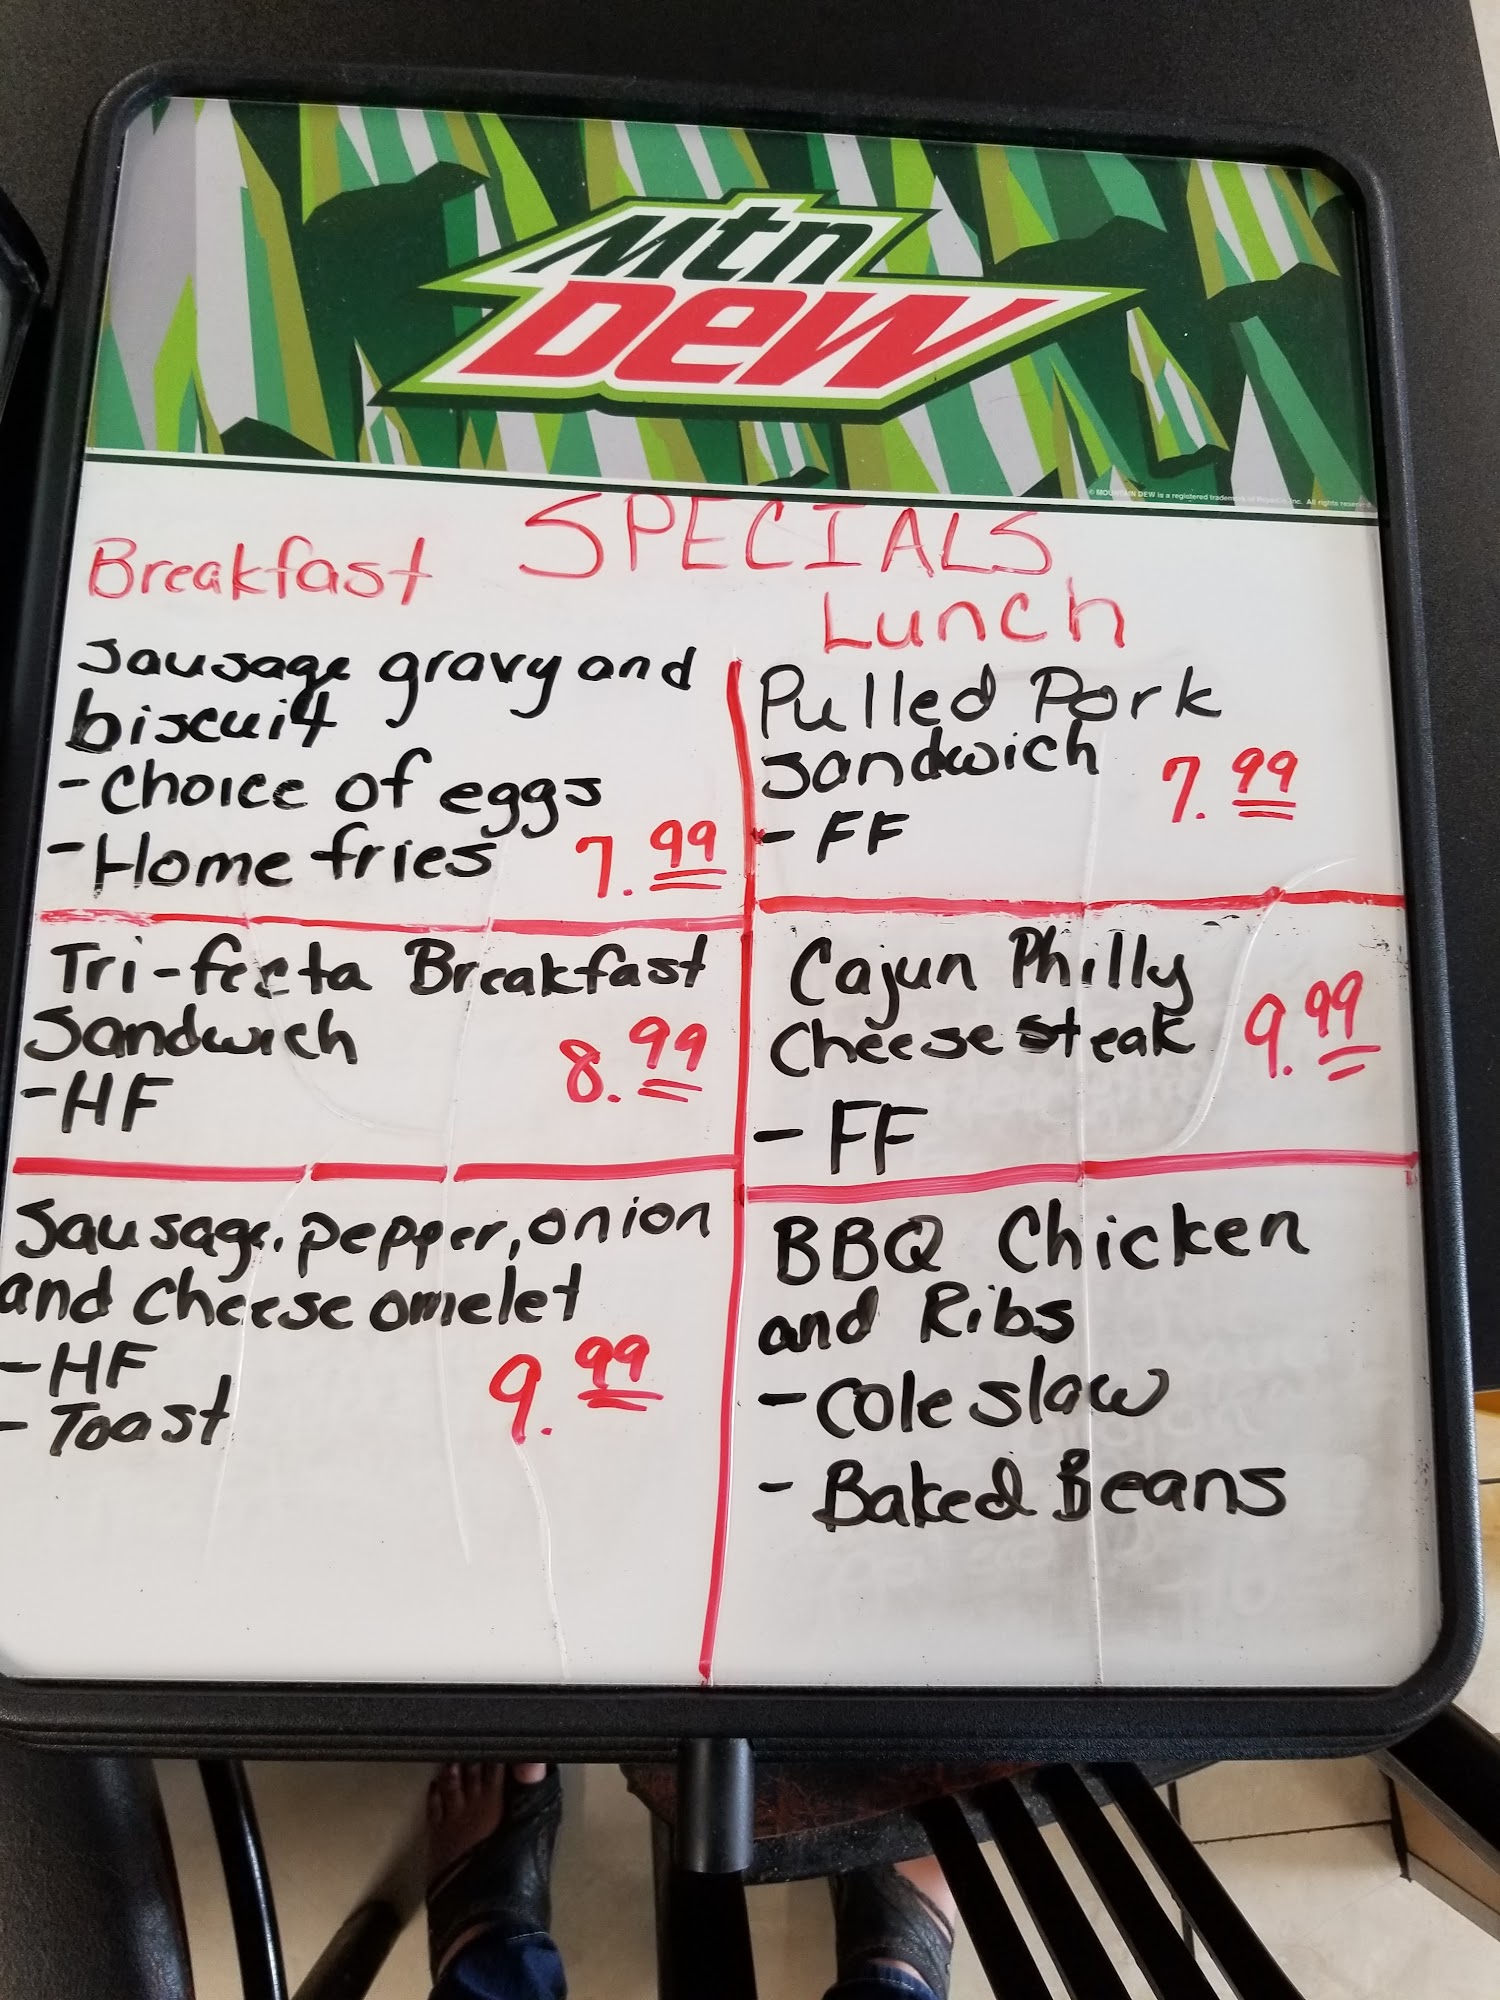 Mtn
Dew
© MOUNTAIN DEW is a registered trademark of PepsiCo, Inc. All rights reserved.
SPECIALS
Breakfast
Sausage gravy and
biscuit
- Choice of eggs
- Home fries 7.99
Tri-fecta Breakfast
Sandwich 8.99
- HF
Sausage, pepper, onion
and cheese omelet
- HF 9.99
- Toast
Lunch
Pulled Pork
Sandwich 7.99
- FF
Cajun Philly
Cheese steak 9.99
- FF
BBQ Chicken
and Ribs
- Cole slaw
- Baked Beans